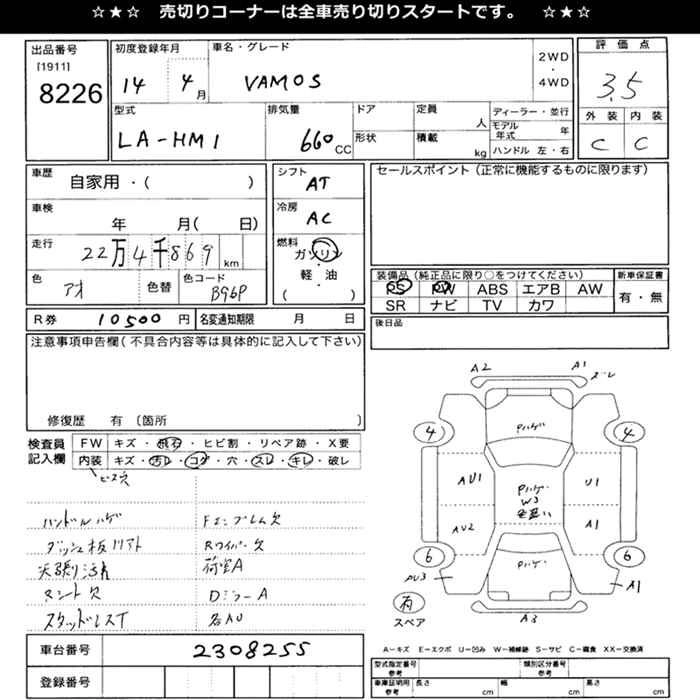 ☆★☆ 売切りコーナーは全車売り切りスタートです。 ☆★☆
出品番号
[1911]
8226
初度登録年月
14 4月
車名・グレード
VAMOS
2WD
・
4WD
評価点
3.5
外装 内装
C C
型式
LA-HM1
排気量
660 CC
ドア
形状
定員
人
積載
kg
ディーラー・並行
モデル年式 年
ハンドル 左・右
車歴
自家用・( )
車検
年 月( 日)
走行
22万4千869 km
色
アオ
色替
色コード
B96P
シフト
AT
冷房
AC
燃料
ガソリン
・
軽油
( )
セールスポイント(正常に機能するものに限ります)
装備品(純正品に限り○をつけてください)
PS PW ABS エアB AW
SR ナビ TV カワ
新車保証書
有・無
R券 10500 円
名変通知期限 月 日
後日品
注意事項申告欄(不具合内容等は具体的に記入して下さい)
修復歴 有 〔箇所 〕
検査員記入欄
FW キズ・飛石・ヒビ割・リペア跡・X要
内装 キズ・汚レ・コゲ・穴・スレ・キレ・破レ
ビス穴
ハンドルハゲ
ダッシュ板リアト
天張汚れ
マット欠
スタッドレスT
Fエンブレム欠
Rワイパー欠
荷室A
DミラーA
各AU
車台番号 2308255
登録番号
A2
A1
ズレ
Pハゲ
4
4
AU1
AU2
Pハゲ
W3
U1
A1
6
6
AU3
Pハゲ
A1
有
スペア
A3
A-キズ E-エクボ U-凹み W-補修跡 S-サビ C-腐食 XX-交換済
型式指定番号
参考
類別区分番号
参考
車庫証明用
参考
長さ cm
幅 cm
高さ cm